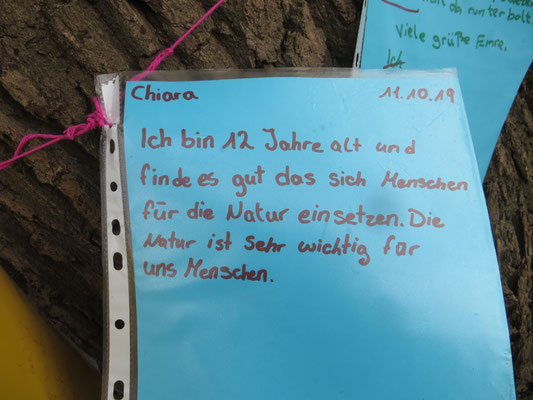 runter holt.
Viele grüße Emre.
Chiara 11.10.19
Ich bin 12 Jahre alt und
finde es gut das sich Menschen
für die Natur einsetzen. Die
Natur ist sehr wichtig für
uns Menschen.